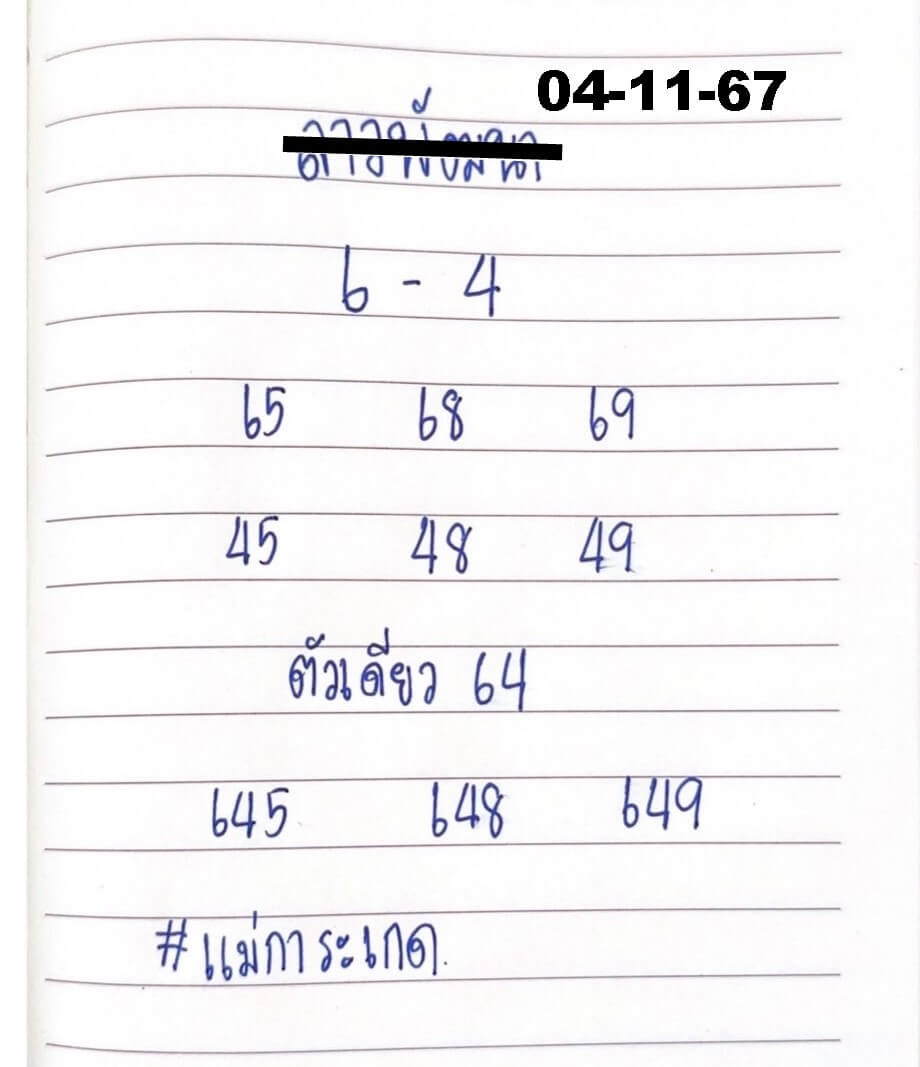 04-11-67
6 - 4
65 68 69
45 48 49
ตัวเดียว 64
645 648 649
#แม่การะเกด.